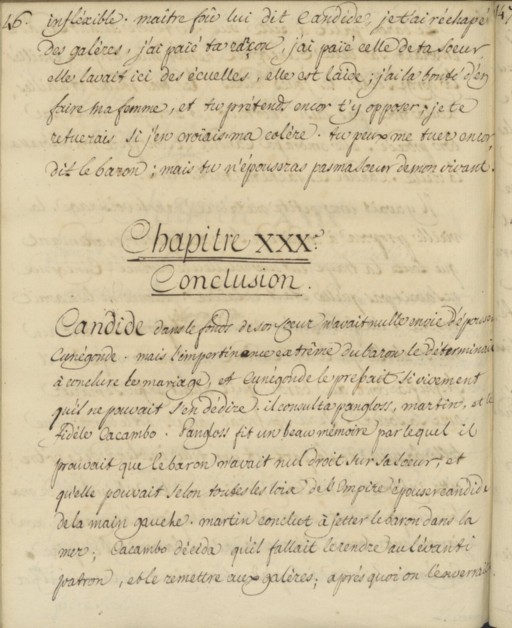 46. infléxible. maitre fou lui dit Candide, je t'ai réchapé
des galères, j'ai païé ta rançon, j'ai païé celle de ta soeur
elle lavait ici des écuelles, elle est laide; j'ai la bonté d'en
faire ma femme, et tu prétends encor t'y opposer; je te
retuerais si j'en croiais ma colère. tu peux me tuer encor,
dit le baron; mais tu n'épouseras pas ma soeur de mon vivant.
Chapitre XXX.e
Conclusion.
Candide dans le fonds de son coeur n'avait nulle envie d'épouser
Cunégonde. mais l'impertinence extrême du baron le déterminait
à conclure le mariage, et Cunégonde le pressait si vivement
qu'il ne pouvait s'en dédire. il consulta pangloss, martin, et le
fidèle Cacambo. Pangloss fit un beau mémoire par lequel il
prouvait que le baron n'avait nul droit sur sa soeur, et
qu'elle pouvait selon toutes les loix de l'Empire épouser candide
de la main gauche. martin conclut à jetter le baron dans la
mer; Cacambo décida qu'il fallait le rendre au lévanti
patron, et le remettre aux galères; après quoi on l'enverrait